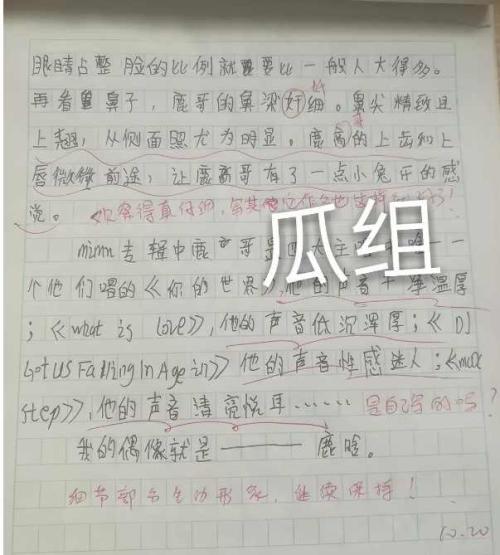 眼睛占整脸的比例就要比一般人大得多。
再看鼻子,鹿哥的鼻梁好细。鼻尖精致且
上翘,从侧面照尤为明显。鹿哥的上齿和上
唇微微前途,让鹿哥哥有了一点小兔牙的感
觉。观察得真仔细,
mimn专辑中鹿哥是四大主唱
个他们唱的《你的世界》,他的声音十年温厚
;《what is love》,他的声音低沉浑厚;《DJ
Got US Falling In Age in》他的声音性感迷人;《max
step》,他的声音清亮悦耳……是自己写的吗?
我的偶像就是——鹿晗。
细节部分生动形象,继续保持!
10.20
瓜组